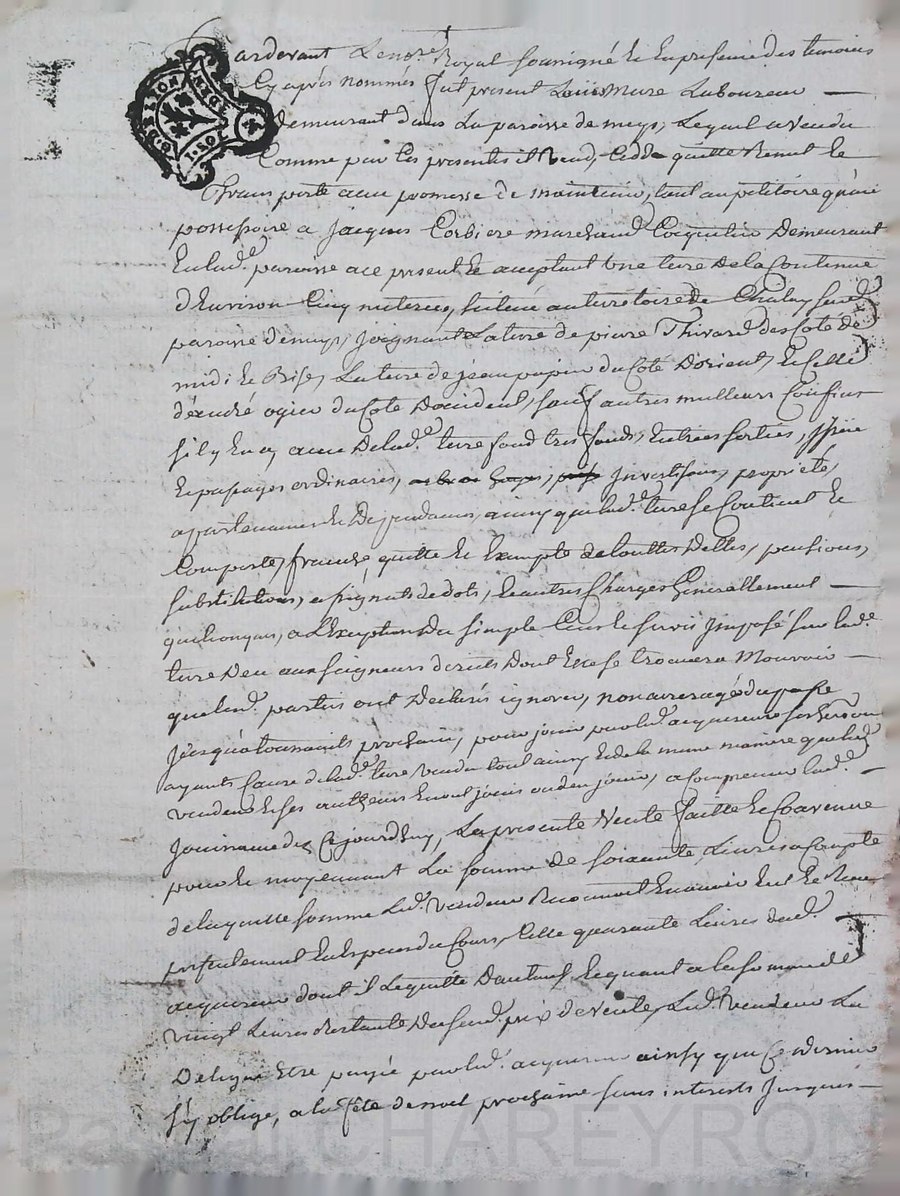 GEN. DE LION
Pardevant Le no.re Royal soussigné et en presence des temoins
Cy apres nommés fut present Louis Mure Laboureur
demeurant dans La paroisse de meys, Lequel a vendu
Comme par Ces presentes il Vend, Cedde quitte Remet et
Transporte avec promesse de maintenir, tant au petitoire qu'au
possessoire a Jacques Corbiere marchand Coquetier Demeurant
En lad.e paroisse a ce present et acceptant Une terre De la Contenue
d'Environ Cinq meterées, scituée au territoire de susd.
paroisse de meys, Joignant La terre de pierre Thivard des Coté de
midi et Bise, La terre de jean papin du Coté D'orient, et Celle
d'andré ogier du Coté D'occident, sauf autres meilleurs Confins
sil y En a, avec De lad.e terre fond tres fonds, Entrées sorties,
et passages ordinaires, Investisons, proprieté,
appartenances et Dependances, ainsy que lad.e terre se Contient et
Comporte, franche quitte et Exempte de touttes Dettes, pensions,
substitutions, assignats de dots, et autres Charges Generallement
quelconques, a L'Exception Du simple Cens et servis Imposé sur lad.e
terre Deu aux seigneurs directs Dont Elle se trouvera Mouvoir
que lesd. parties ont Declarés ignorer, non arreragé du passé
Jusqu'a toussaints prochain, pour jouir par led. acquereur
ayants Cause de lad.e terre vendue tout ainsy et de la meme maniere que led.
vendeur et ses autheurs En ont joui ou deu jouir, a Commencer lad.e
Jouissance des Cejourdhuy, La presente Vente faitte et Convenue
pour et moyennant La somme de soixante Livres a Compte
de laquelle somme Led. vendeur Reconnoit En avoir Eut et Receu
presentement En Especes du Cours, Celle quarante Livres dud.
acquereur dont il Le quitte D'autant, et quant a la somme de
vingt Livres Restante Du susd. prix de Vente, Led. Vendeur La
Delegue Etre payée par led. acquereur ainsy que Ce dernier
s'y oblige, a la fête de noel prochaine sans interets Jusques
Pascal CHAREYRON